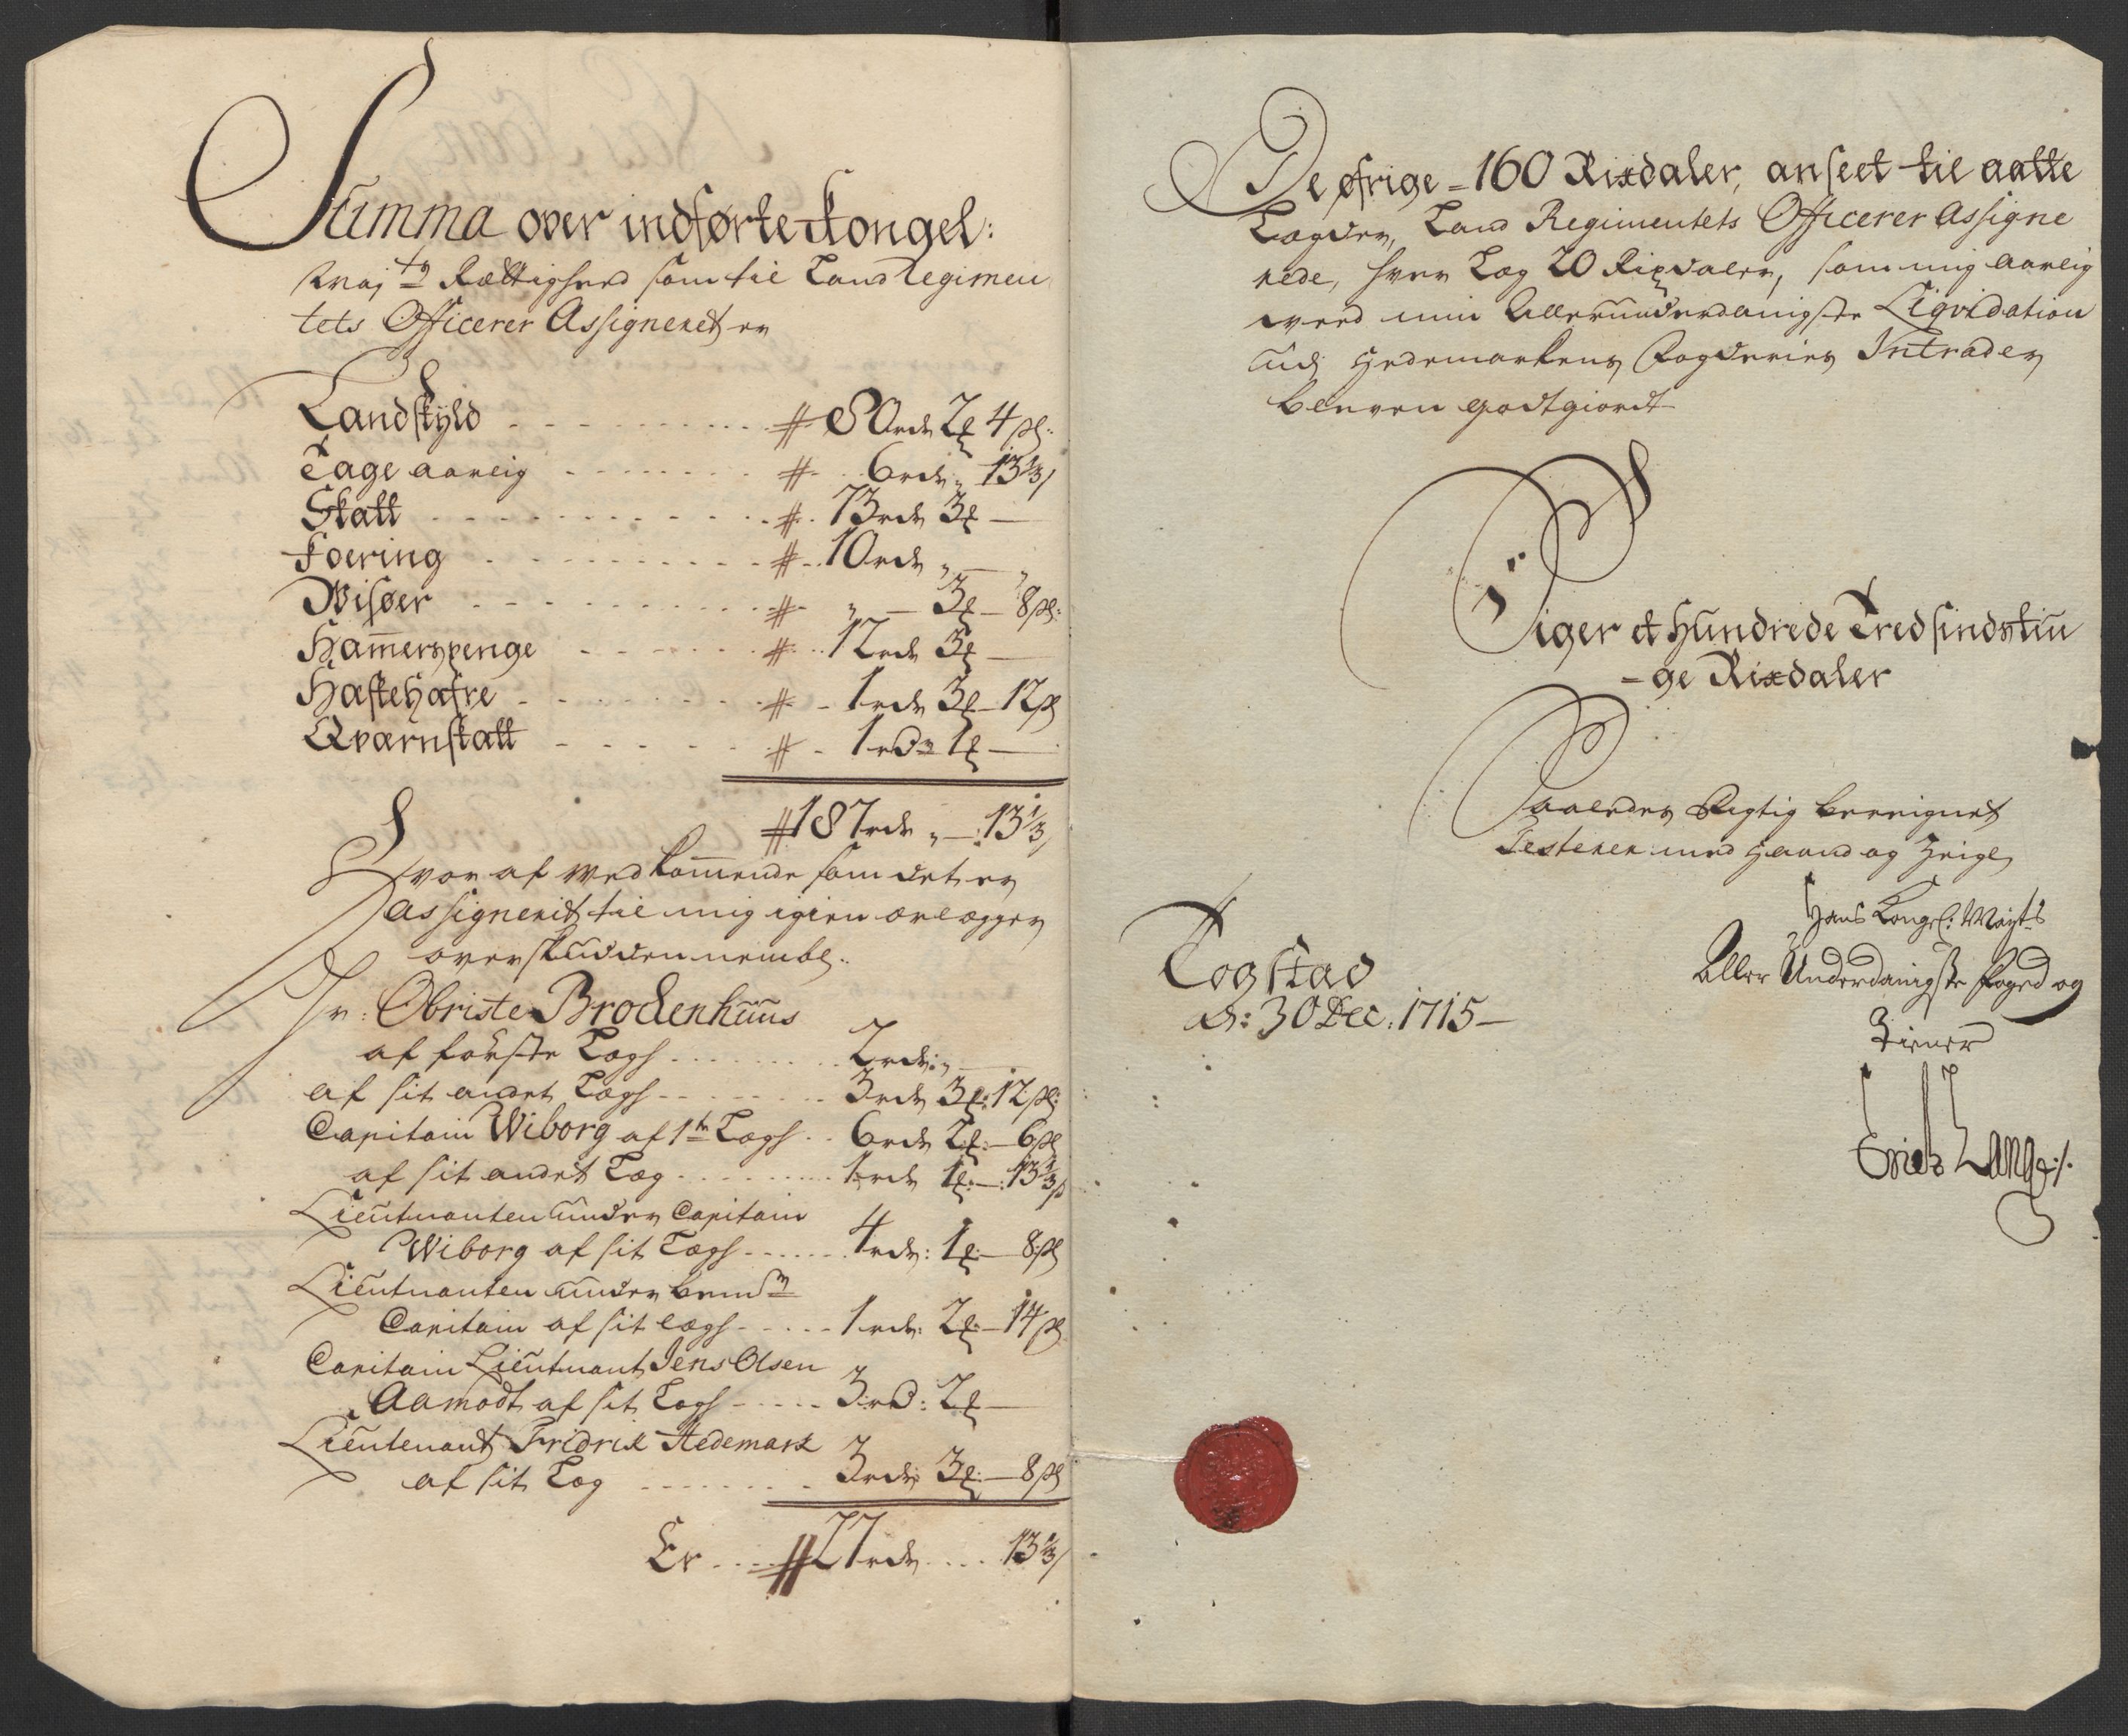 Summa over indførte Kongel:
May:ts Rættighed som til Land Regimen
tets Officerer Assigneret er
Landskyld # 80 rdr 2 ℔ 4 sk:
Tage aarlig # 6 rdr „ 13⅓ /
Skatt # 73 rdr 3 ℔ —
Foering # 10 rdr „ — „
Wisøer # „ — 3 ℔ — 8 sk:
Ham̄erspenge # 12 rdr 3 ℔ —
Hæstehafre # 1 rdr 3 ℔ — 12 sk
Qværnskatt # 1 rd 1 ℔ —
# 187 rdr „ — 13⅓ /
Hvor af wedkom̄ende som det er
assignerit til mig igien erlægger
overskudden nembl:
Hr: Obriste Brochenhuus
af første Lægh 2 rdr: „ —
af sit andet Lægh 3 rdr 3 ℔: 12 sk:
Capitain Wiborg af 1te Lægh 6 rdr 2 ℔ — 6 sk
af sit andet Læg 1 rdr 1 ℔ — 13⅓ sk
Lieutnanten under Capitain
Wiborg af sit Lægh 4 rdr: 1 ℔ — 8 sk
Lieutnanten under bem:te
Capitain af sit lægh 1 rdr: 2 ℔ — 14 sk
Capitain Lieutnant Jens Olsen
Aamodt af sit Lægh 3 rd: 2 ℔ —
Lieutenant Fridrik Hedemark
af sit Læg 3 rdr 3 ℔ — 8 sk
Er # 27 rdr 13⅓ /
De øfrige = 160 Rixdaler, anseet til aatte
Lægder, Land Regimentets Officerer Assigne
rede, hver Læg 20 Rixdaler, som mig aarlig
wed min Allerunderdanigste Liqvidation
udj Hedemarkens Fogderies Intrader
bleven godtgiordt
Siger et Hundrede Tredsindstiu
-ge Rixdaler
Saaledes Rigtig beregnet
Testerer med Haand og Zeigl
Hans Kongel: Mayts
Aller Underdanigste foged og
Tiener
Erich Lange /.
Togstad
d: 30 Dec: 1715 —